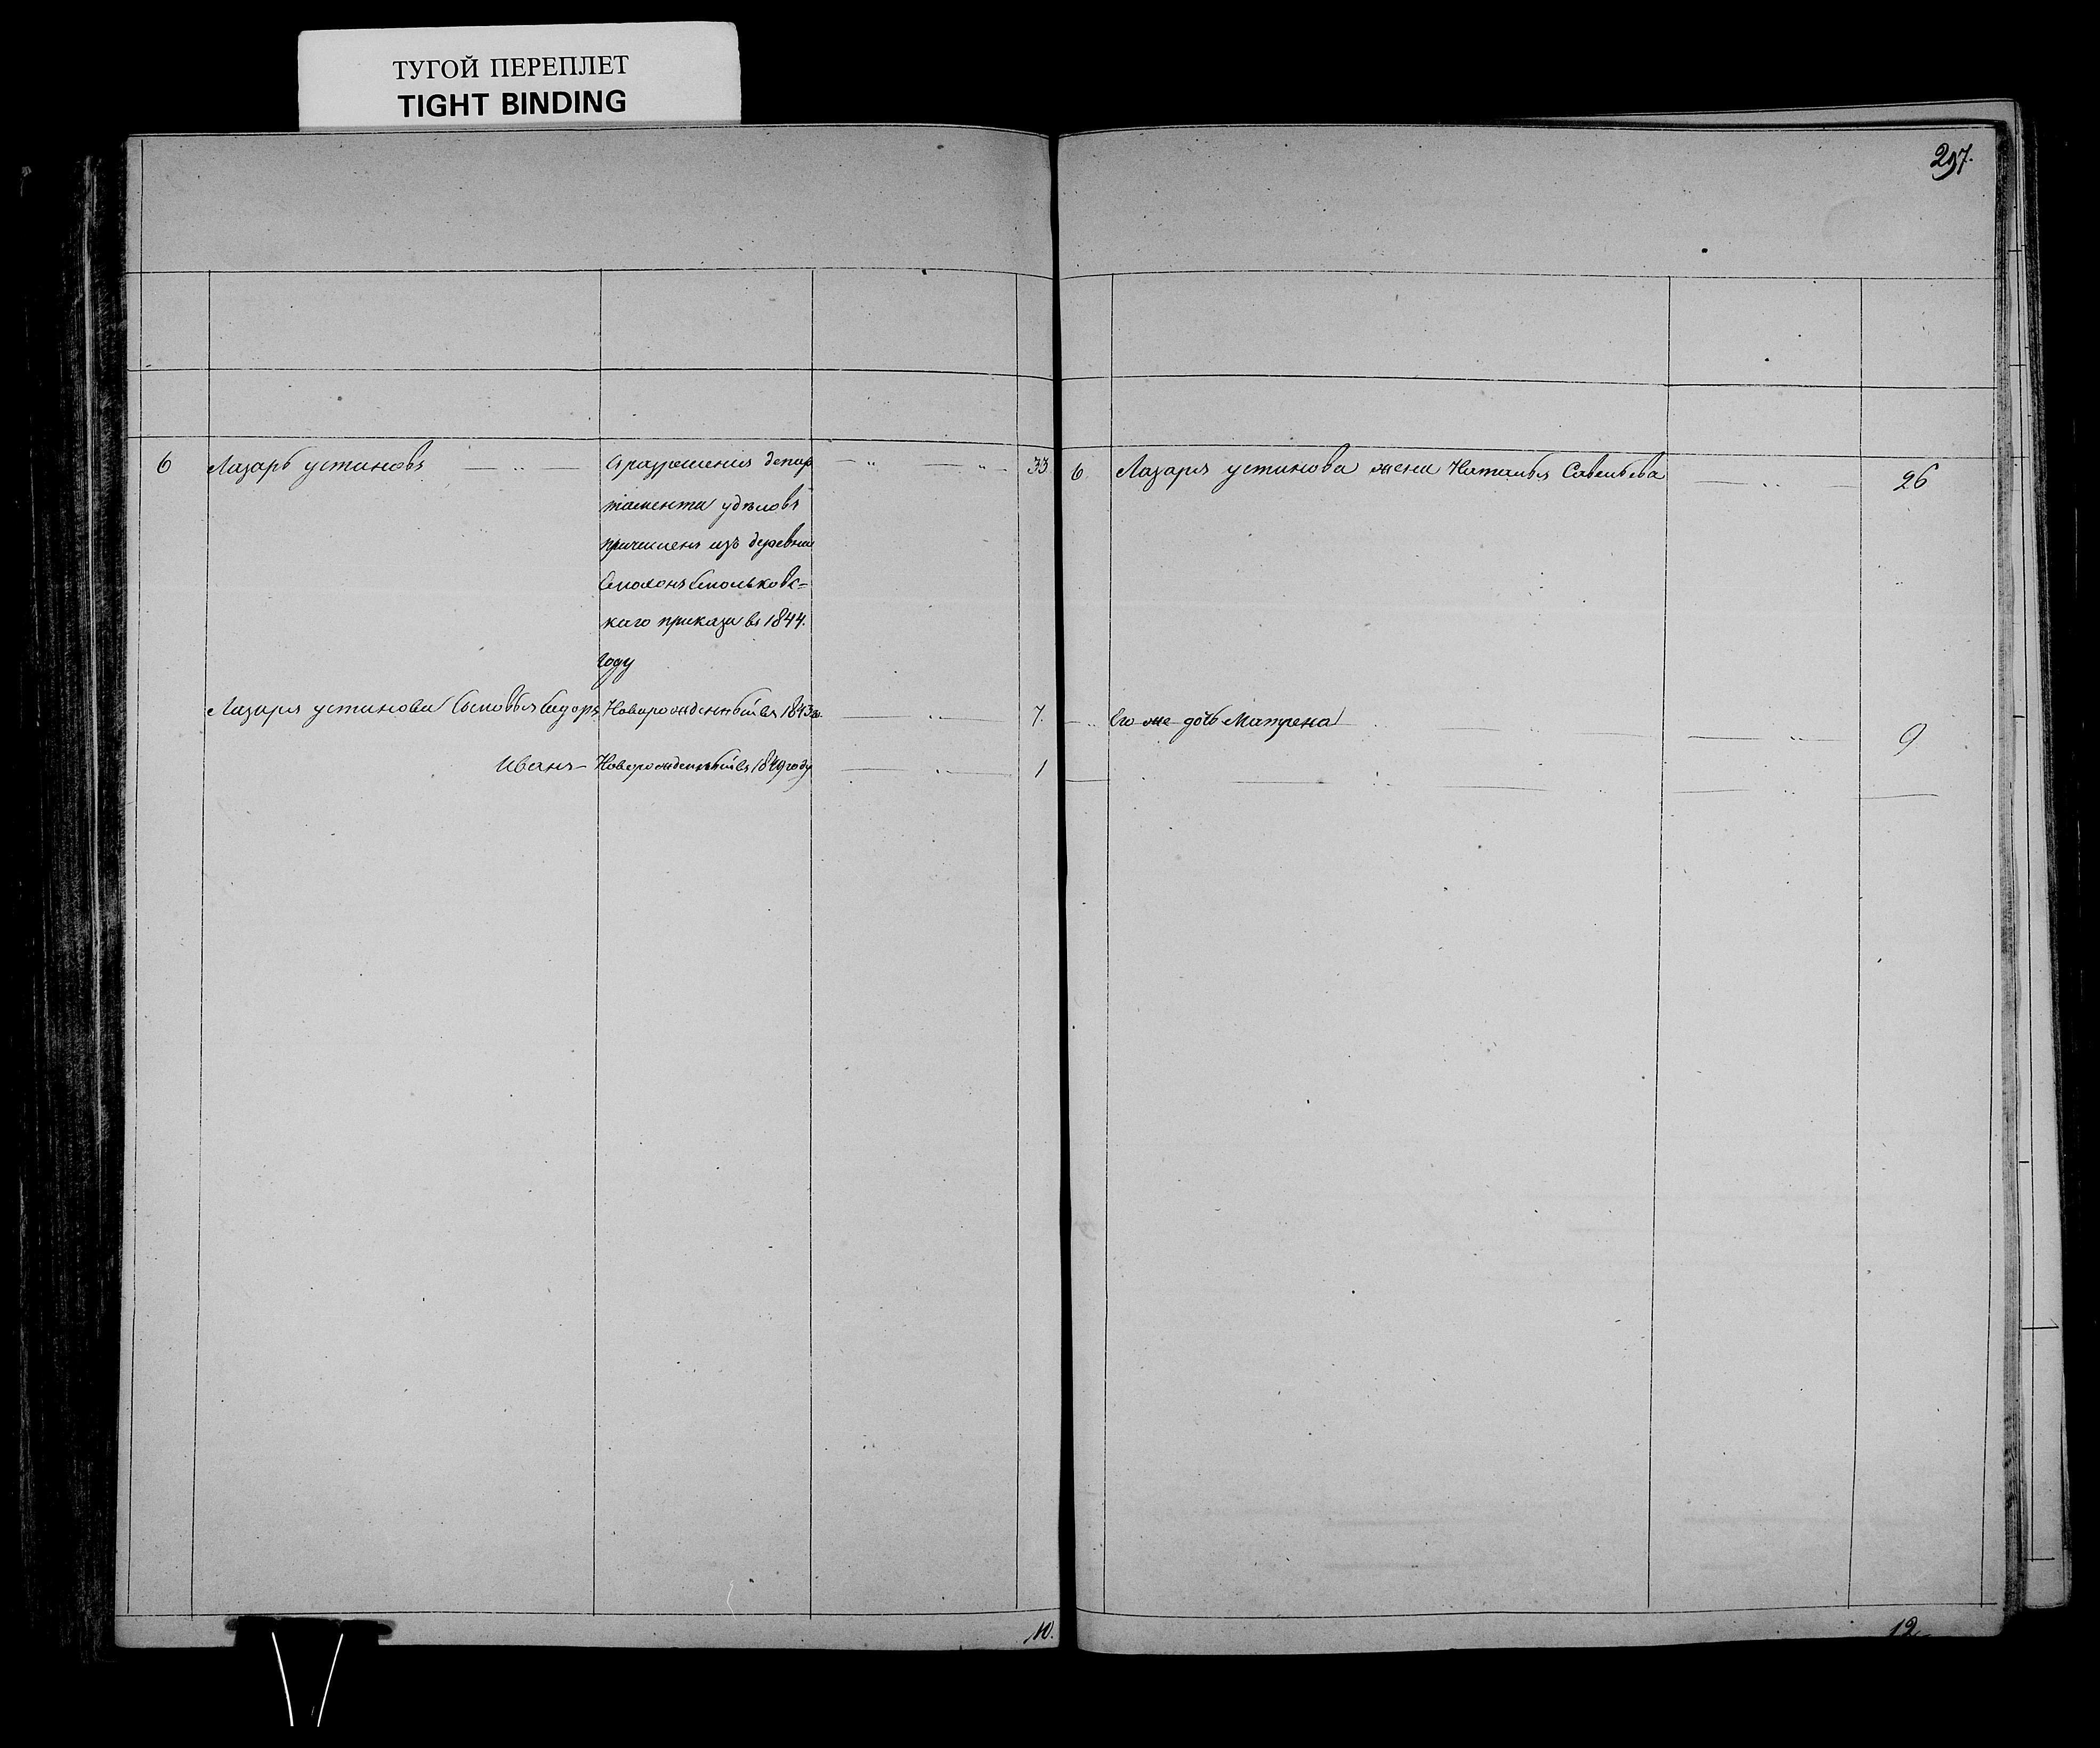 ТУГОЙ ПЕРЕПЛЕТ
TIGHT BINDING
6 Лазарь устиновъ — „ — Съ разрешения депар — „ — „ — 33
тамента уделовъ
причисленъ изъ деревни
ковс=
каго приказа въ 1844.
году
Лазаря устинова сыновья Сидоръ Новорожденный въ 1843 — „ — 7.
Иванъ — Новорожденный въ 1849 году — „ — 1
10.
297.
6 Лазаря устинова жена Наталья Савельева — „ — 26
— „ Его же дочь Матрена — „ — 9
12